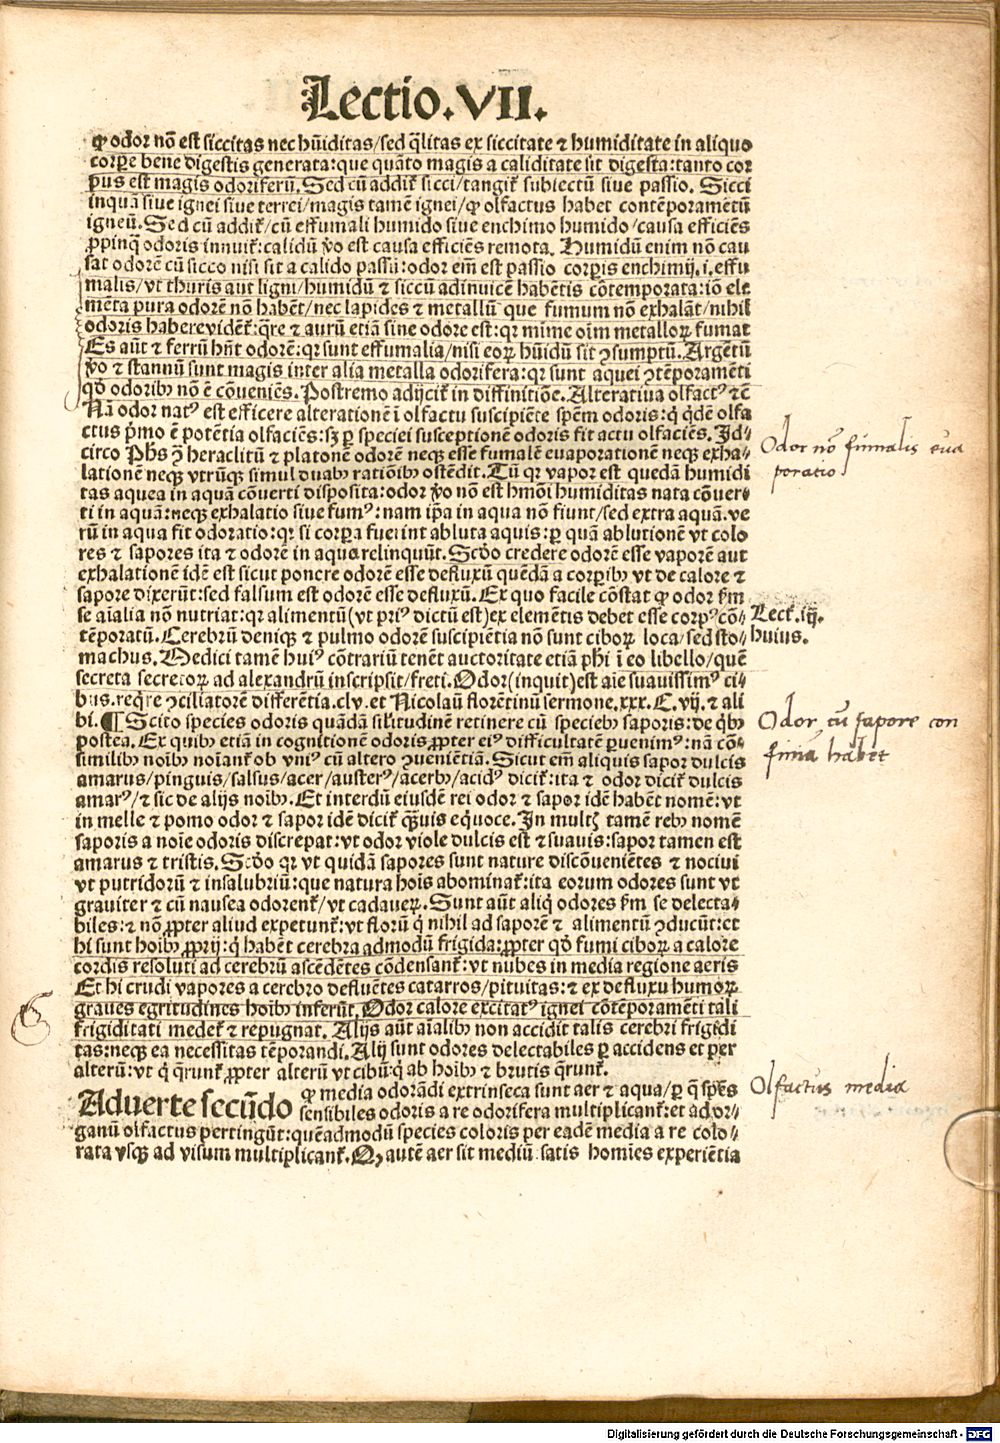 Lectio.VII.
ꝙ odor nō est siccitas nec hūiditas/sed q̄litas ex siccitate ⁊ humiditate in aliquo
corꝑe bene digestis generata:que quāto magis a caliditate sūt digesta:tanto cor
pus est magis odoriferū. Sed cū addit̃ sicci/tangit̃ subiectū siue passio. Sicci
inquā siue ignei siue terrei/magis tamē ignei/ꝙ olfactus habet contēporamētū
igneū. Sed cū addit̃/cū effumali humido siue enchimo humido/causa efficiēs
ꝓpinq̄ odoris innuit̃:calidū v̊o est causa efficiēs remota. Humidū enim nō cau
sat odorē cū sicco nisi sit a calido passū:odor em̄ est passio corꝑis enchimij.i.effu
malis/vt thuris aut ligni/humidū ⁊ siccū adinuicē habētis cōtemporata:iō ele
mēta pura odorē nō habēt/nec lapides ⁊ metallū que fumum nō exhalāt/nihil
odoris habere vidēt̃:q̄re ⁊ aurū etiā sine odore est:qr mīme oīm metalloꝝ fumat
Es aūt ⁊ ferrū hn̄t odorē:qr sunt effumalia/nisi eoꝝ hūidū sit ꝯsumptū. Argētū
v̊o ⁊ stannū sunt magis inter alia metalla odorifera:qr sunt aquei ꝯtēporamēti
qd̊ odoribꝫ nō ē cōueniēs. Postremo adijcit̃ in diffinitiōe. Alteratiua olfactꝰ ⁊c̄
Nā odor natꝰ est efficere alterationē ī olfactu suscipiēte spēm odoris:q̇ q̇dē olfa
ctus p̄mo ē potētia olfaciēs:sꝫ ꝑ speciei susceptionē odoris fit actu olfaciēs. Id⸗
circo Phs ꝯ heraclitū ⁊ platonē odorē neqꝫ esse fumalē euaporationē neqꝫ exha⸗
lationē neqꝫ vtrūqꝫ simul duabꝫ ratiōibꝫ ostēdit. Tū qr vapor est quedā humidi
tas aquea in aquā cōuerti disposita:odor v̊o nō est hmōi humiditas nata cōuer⸗
ti in aquā:neqꝫ exhalatio siue fumꝰ:nam ip̄a in aqua nō fiunt/sed extra aquā. ve
rū in aqua fit odoratio:qr si corꝑa fuerint abluta aquis:ꝑ quā ablutionē vt colo
res ⁊ sapores ita ⁊ odorē in aqua relinquūt. Scd̊o credere odorē esse vaporē aut
exhalationē idē est sicut ponere odorē esse defluxū quēdā a corꝑibꝫ vt de calore ⁊
sapore dixerūt:sed falsum est odorē esse defluxū. Ex quo facile cōstat ꝙ odor ẜm
se aīalia nō nutriat:qr alimentū(vt priꝰ dictū est)ex elemētis debet esse corpꝰ cō⸗
tēporatū. Cerebrū deniqꝫ ⁊ pulmo odorē suscipiētia nō sunt ciboꝝ loca/sed sto⸗
machus. Medici tamē huiꝰ cōtrariū tenēt auctoritate etiā phi ī eo libello/quē
secreta secretoꝝ ad alexandrū inscripsit/freti. Odor(inquit)est aīe suauissimꝰ ci⸗
bus.req̄re ꝯciliatorē differētia.clv. et Nicolaū florētinū sermone.xxx.C.vij.⁊ ali
bi. ¶ Scito species odoris quādā silitudinē retinere cū speciebꝫ saporis:de q̇bꝫ
postea. Ex quibꝫ etiā in cognitionē odoris ꝓpter eiꝰ difficultatē ꝑuenimꝰ:nā cō⸗
similibꝫ noībꝫ noīant̃ ob vniꝰ cū altero ꝯueniētiā. Sicut em̄ aliquis sapor dulcis
amarus/pinguis/salsus/acer/austerꝰ/acerbꝰ/acidꝰ dicit̃:ita ⁊ odor dicit̃ dulcis
amarꝰ/⁊ sic de alijs noībꝫ. Et interdū eiusdē rei odor ⁊ sapor idē habēt nomē:vt
in melle ⁊ pomo odor ⁊ sapor idē dicit̃ qꝫuis eq̇uoce. In multꝭ tamē rebꝫ nomē
saporis a noīe odoris discrepat:vt odor viole dulcis est ⁊ suauis:sapor tamen est
amarus ⁊ tristis. Scd̊o qr vt quidā sapores sunt nature discōueniētes ⁊ nociui
vt putridorū ⁊ insalubriū:que natura hoīs abominat̃:ita eorum odores sunt vt
grauiter ⁊ cū nausea odorent̃/vt cadaueꝝ. Sunt aūt aliq̇ odores ẜm se delecta⸗
biles:⁊ nō ꝓpter aliud expetunt̃:vt florū q̇ nihil ad saporē ⁊ alimentū ꝯducūt:et
hi sunt hoībꝫ ꝓprij:q̇ habēt cerebra admodū frigida:ꝓpter qd̊ fumi ciboꝝ a calore
cordis resoluti ad cerebrū ascēdētes cōdensant̃:vt nubes in media regione aeris
Et hi crudi vapores a cerebro defluētes catarros/pituitas:⁊ ex defluxu humoꝝ
graues egritudines hoībꝫ inferūt. Odor calore excitatꝰ ignei cōtēporamēti tali
frigiditati medet̃ ⁊ repugnat. Alijs aūt aīalibꝫ non accidit talis cerebri frigidi
tas:neqꝫ ea necessitas tēporandi. Alij sunt odores delectabiles ꝑ accidens et ꝑer
alterū:vt q̇ q̄runt̃ ꝓpter alterū vt cibū:q̇ ab hoībꝫ ⁊ brutis q̄runt̃.
Aduerte secūdo ꝙ media odorādi extrinseca sunt aer ⁊ aqua/ꝑ q̄ sp̄es
sensibiles odoris a re odorifera multiplicant̃:et ad or⸗
ganū olfactus pertingūt:quēadmodū species coloris per eadē media a re colo⸗
rata vsqꝫ ad visum multiplicant̃. Qꝫ autē aer sit mediū satis homīes experiētia
Odor nō fumalis eua
poratio
Lect̃.iij.
huius.
Odor cū sapore con
fimā habēt
Olfactus media
Digitalisierung gefördert durch die Deutsche Forschungsgemeinschaft - DFG